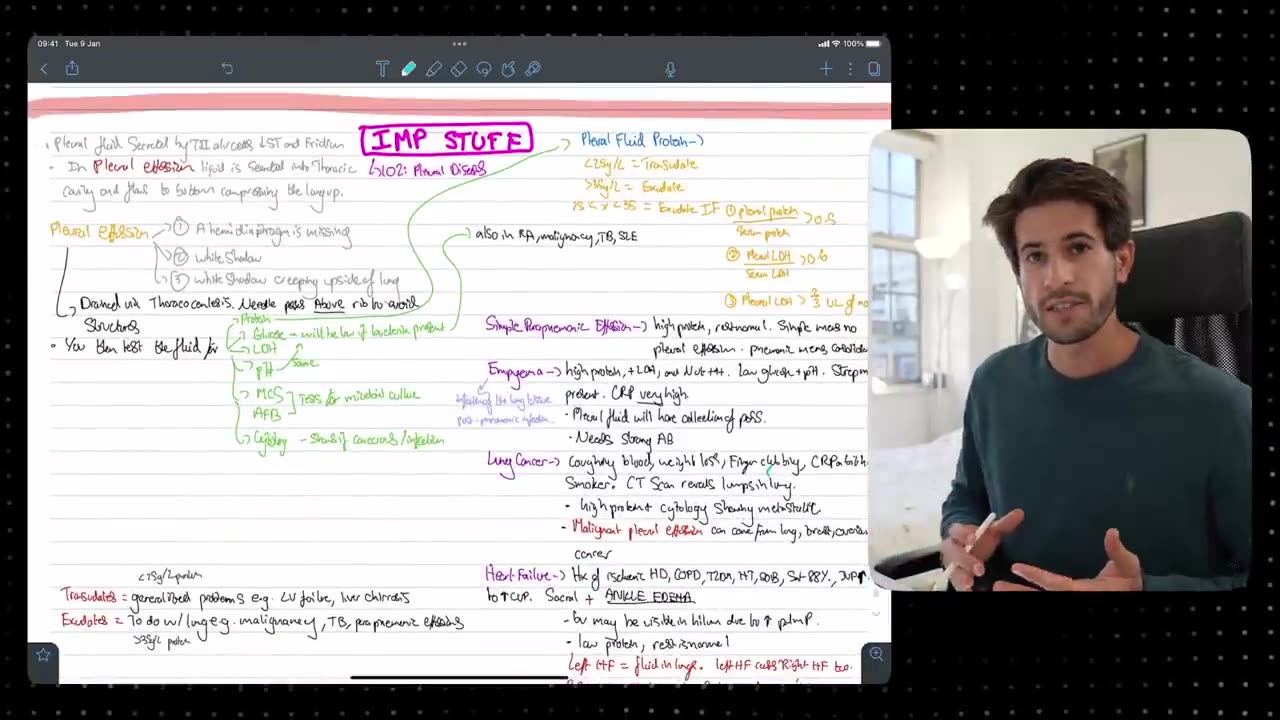 09:41 Tue 9 Jan
100%
IMP STUFF
↳ LO2: Pleural Diseases
• Pleural fluid Secreted by TII alv cells ↓ST and Friction
- In Pleural effusion liquid is Secreted into Thoracic
cavity and flows to bottom compressing the lung up.
Pleural effusion
① A hemidiaphragm is missing
② white Shadow
③ white Shadow creeping upside of lung
Drained via Thoracocentesis. Needle pass Above rib to avoid
Structures
• You then test the fluid for
Protein
Glucose - will be low if bacteria present
LDH
pH same
MCS
AFB
Tests for microbial culture
Cytology - Shows if cancerous/infection
<25g/L protein
Trasudates = generalised problems e.g. LV failure, liver chirrosis
Exudates = To do w/ lung e.g. malignancy, TB, parapneumonic effusions
>35g/L protein
Pleural Fluid Protein →
<25g/L = Trasudate
>35g/L = Exudate
25 < x < 35 = Exudate IF ① pleural protein
Serum protein
> 0.5
② Pleural LDH
Serum LDH
> 0.6
③ Pleural LDH > 2/3 UL of no
also in RA, malignancy, TB, SLE
Simple Parapnemonic Effusion → high protein, rest normal. Simple means no
pleural effusion. pneumonic means
Empyema → high protein, ↑LDH, and Nut ++. Low glucose + pH.
infection of the lung tissue
post-pneumonic infection
present. CRP very high.
• Pleural fluid will have collection of puss.
• Needs Strong AB
Lung Cancer → Coughing blood, weight loss, Finger clubbing, CRP a bit h
Smoker. CT Scan reveals lumps in lung.
• high protein + cytology showing metastatic
• Malignant pleural effusion can come from lung, breast, ovarian
cancer
Heart Failure → Hx of ischemic HD, COPD, T2DM, HT, SOB, Sat 88%, JVP↑
to ↑CVP. Sacral + ANKLE EDEMA
- bv may be visible in hilum due to ↑ pulm P.
- low protein, rest is normal
Left HF = fluid in lungs. left HF causes Right HF too.